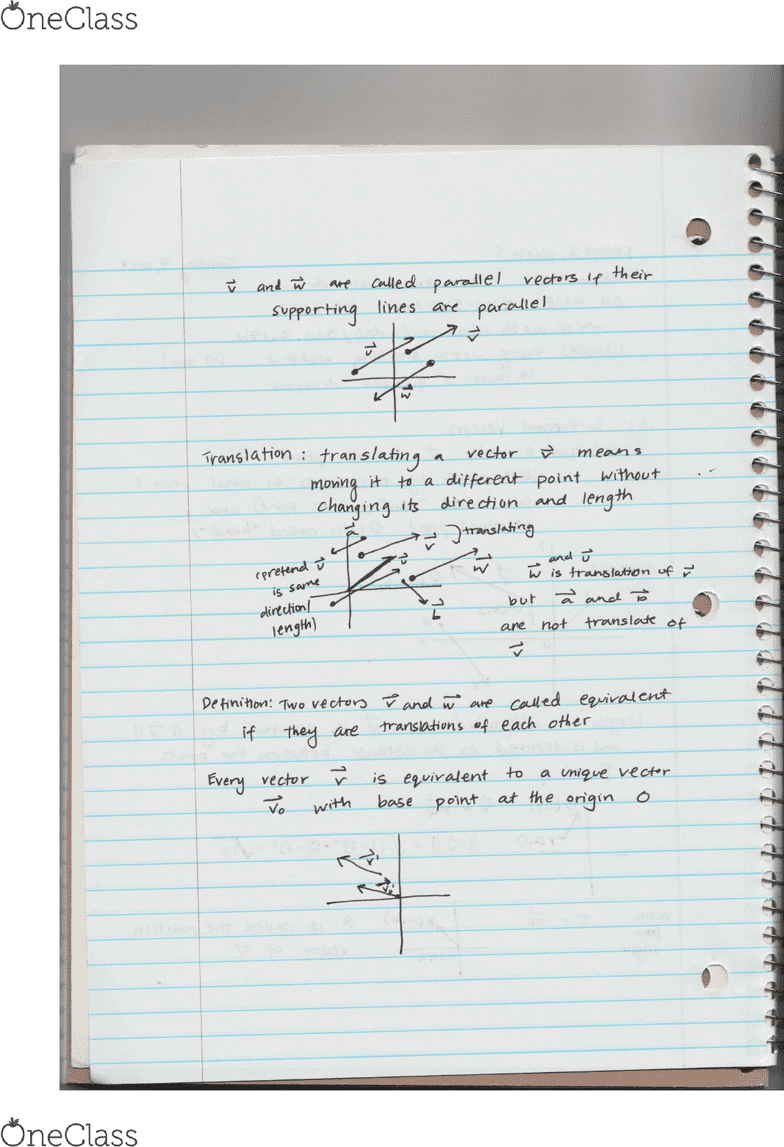 OneClass
v⃗ and w⃗ are called parallel vectors if their
supporting lines are parallel
v⃗
v⃗
w⃗
Translation: translating a vector v⃗ means
moving it to a different point without
changing its direction and length
a⃗
v⃗
} translating
(pretend v⃗
is same
direction/
length)
v⃗
w⃗
b⃗
and v⃗
w⃗ is translation of v⃗
but a⃗ and b⃗
are not translate of
v⃗
Definition: Two vectors v⃗ and w⃗ are called equivalent
if they are translations of each other
Every vector v⃗ is equivalent to a unique vector
v⃗₀ with base point at the origin O
v⃗
v⃗₀
OneClass